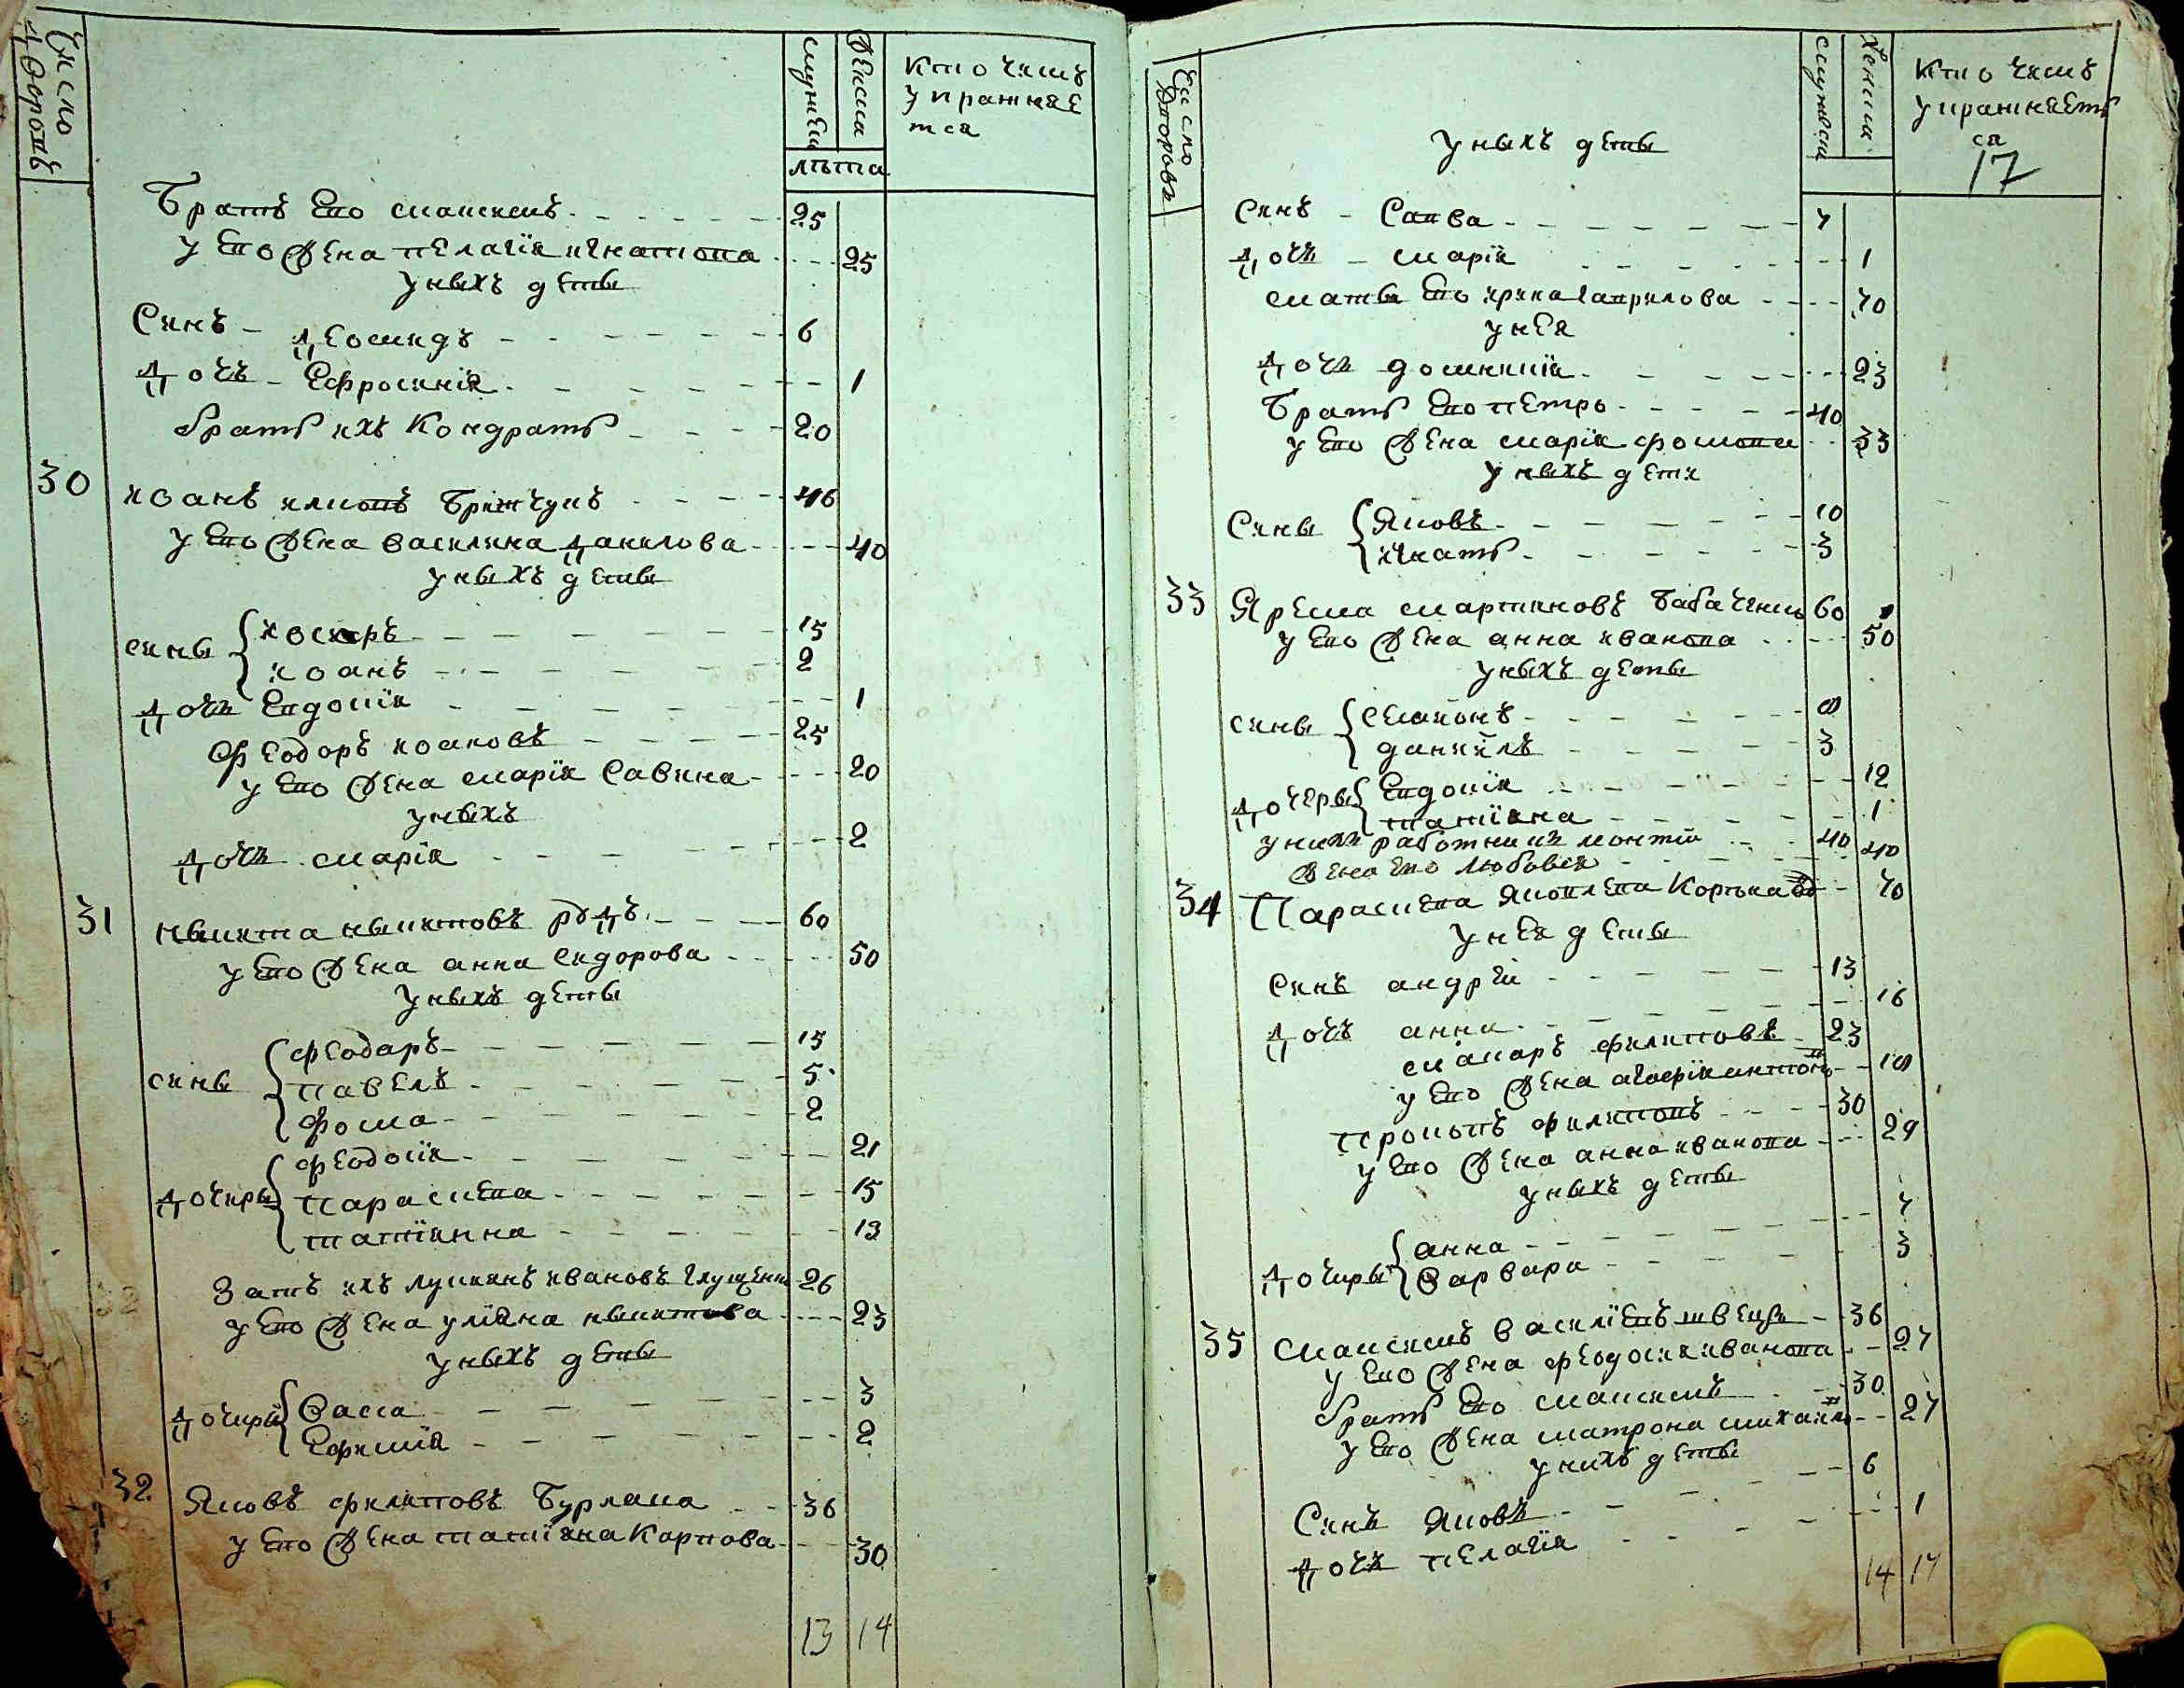 Число дворовъ
Мужеска
Женска
лѣта
Кто чемъ
упражнае
тса
Братъ Его маѯимъ 25
у Его жена пелагїя игнатова 25
уныхъ деты
Синъ - Деомидъ 6
Дочь - Ефросинїя 1
братъ ихъ Кондратъ 20
30 иоанъ климовъ 46
у Его жена василина Данилова 40
уныхъ деты
сины иосифъ 15
иоанъ 2
Дочь Евдокїя 1
феодоръ иоановъ 25
у Его жена марїя Савина 20
уныхъ
Дочь марїя 2
31 ныкита ныкитовъ 60
у Его жена анна Сидорова 50
уныхъ деты
сины феодаръ 15
павелъ 5
фома 2
Дочиры феодосїя 21
параскева 15
татїянна 13
Зать ихъ лукиянъ ивановъ глущенко 26
у Его жена улїяна ныкитова 23
уныхъ деты
Дочиры Васса 3
Ефимїя 2
32 Яковъ филиповъ Бурлака 36
у Его жена татїяна Карпова 30
13 14
Число Дворовъ
Мужеска
Женска
Кто чемъ
упражнаетъ
са
17
уныхъ деты
Синъ - Савва 7
Дочь - марїя 1
маты Его ирина гаврилова 70
у нея
Дочь домникїя 23
Братъ Его петро 40
у Его жена марїя фомова 33
уныхъ дети
Сины Яковъ 10
игнатъ 3
33 Ярема мартиновъ бабаченко 60
у Его жена анна иванова 50
уныхъ деты
сины Семионъ 8
данїилъ 3
Дочеры Евдокїя 12
татїяна 1
унихъ работникъ 40
жена Его любовея 40
34 Параскева Яковлева 70
у нея деты
Синъ андрей 13
Дочь анна 16
макаръ филиповъ 23
у Его жена агафїя антон 18
прокопъ филиповъ 30
у Его жена анна иванова 29
уныхъ деты
Дочиры анна 7
Варвара 3
35 маѯимъ василїевъ швецъ 36
у Его жена феодосия иванова 27
братъ Его маѯимъ 30
у Его жена матрона михаил 27
унихъ деты
Синъ Яковъ 6
Дочь пелагїя 1
14 17